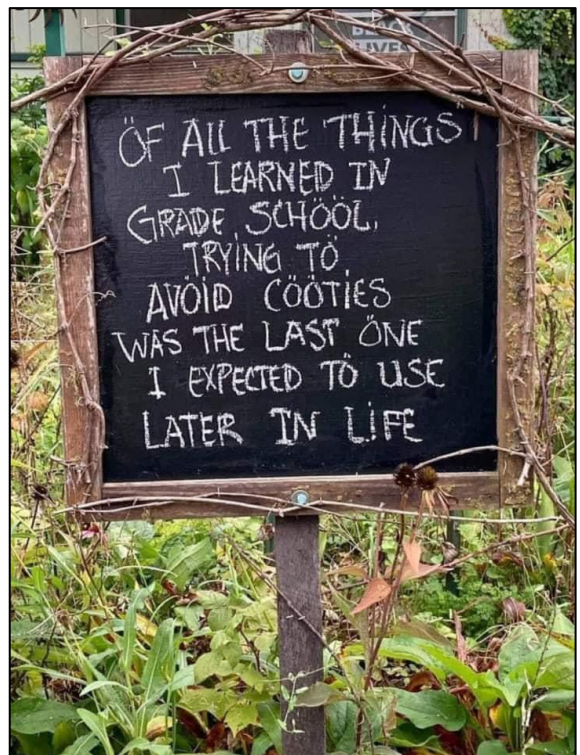 BLACK
LIVES
ÖF ALL THE THiNGS
I LEARNED IN
GRADE SCHÖÖL,
TRYING TÖ
AVÖID CÖÖTiES
WAS THE LAST ÖNE
I EXPECTED TÖ USE
LATER IN LiFE